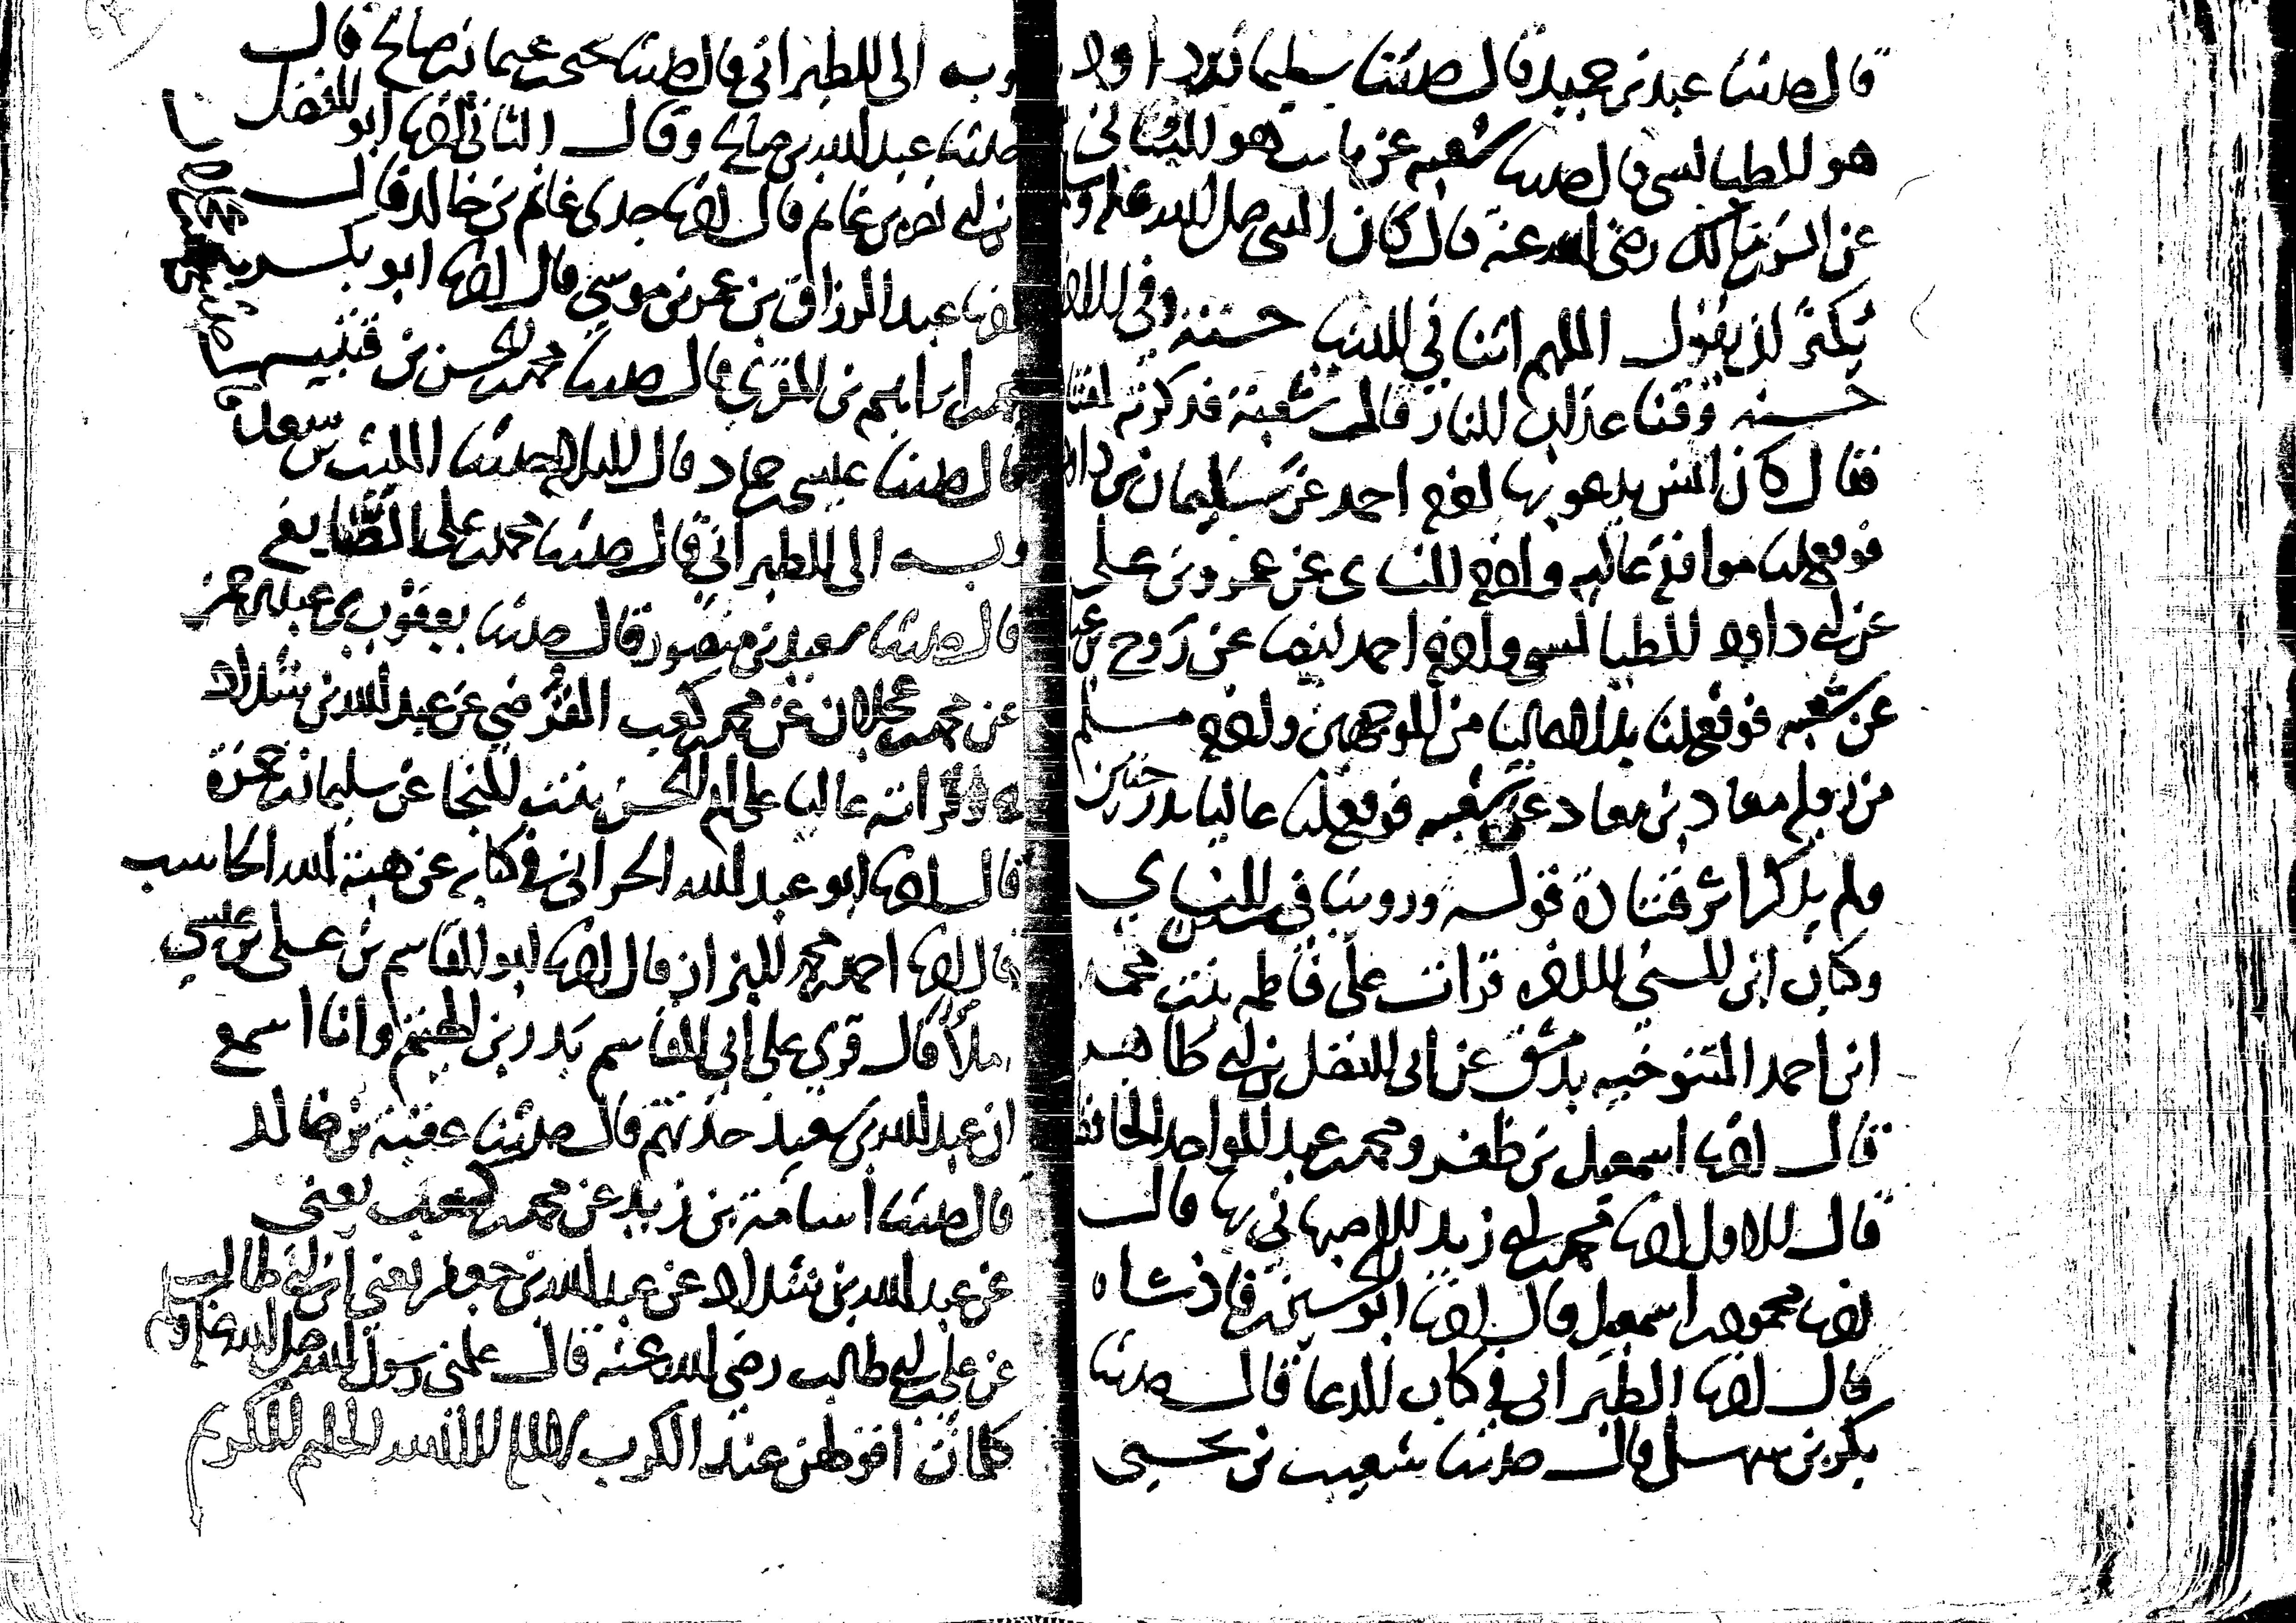 قال حدثنا عبد بن حميد قال حدثنا سليمان بن داود
هو الطيالسي قال حدثنا شعبة عن ثابت هو البناني
عن انس بن مالك رضي الله عنه قال كان النبي صلى الله عليه وسلم
يكثر ان يقول اللهم اتنا في الدنيا حسنة وفي الاخرة
حسنة وقنا عذاب النار قال شعبة فذكرته لقتادة
فقال كان انس يدعو بها اخرجه احمد عن سليمان بن داود
فوقع لنا موافقة عالية واخرجه النسائي عن عمرو بن علي
عن ابي داود الطيالسي واخرجه احمد ايضا عن روح بن
عن شعبة فوقع لنا بدلا عاليا من الوجهين واخرجه مسلم
من رواية معاذ بن معاذ عن شعبة فوقع لنا عاليا بدرجتين
ولم يذكر اثر قتادة قوله وروينا في النسائي
وكتاب ابن السني الى اخره قرات على فاطمة بنت محمد
ابن احمد التنوخية بدمشق عن ابي الفضل بن ابي طاهر
قال اخبرنا اسمعيل بن ظفر ومحمد بن عبد الواحد الحافظ
قال الاول اخبرنا محمد بن ابي زيد الاصبهاني بها قال
اخبرنا محمود بن اسمعيل قال اخبرنا ابو الحسين بن فاذشاه
قال اخبرنا الطبراني في كتاب الدعا قال حدثنا
بكر بن سهل قال حدثنا شعيب بن يحيى
وبه الى الطبراني قال حدثنا يحيى بن عثمان بن صالح قال
حدثنا عبد الله بن صالح وقال الثاني اخبرنا ابو الفضل
بن ابي نصر بن غانم قال اخبرنا جدي غانم بن خالد قال
اخبرنا عبد الرزاق بن عمر بن موسى قال اخبرنا ابو بكر
محمد بن ابراهيم بن المقري قال حدثنا محمد بن الحسن بن قتيبة
قال حدثنا عيسى بن حماد قال حدثنا الليث بن سعد
وبه الى الطبراني قال حدثنا محمد بن علي الصايغ
قال حدثنا سعيد بن منصور قال حدثنا يعقوب بن عبد الرحمن
عن محمد بن عجلان عن محمد بن كعب القرظي عن عبد الله بن شداد
ح وقراته عاليا على ام الحسن بنت المنجا عن سليمان بن حمزة
قال اخبرنا ابو عبد الله الحراني في كتابه عن هبة الله الحاسب
قال اخبرنا احمد بن محمد البزاز قال اخبرنا ابو القاسم بن علي بن عيسى
املا قال قري على ابي القاسم بدر بن الهيثم وانا اسمع
ان عبد الله بن سعيد حدثهم قال حدثنا عقبة بن خالد
قال حدثنا اسامة بن زيد عن محمد بن كعب يعني
عن عبد الله بن شداد عن عبد الله بن جعفر يعني ابن ابي طالب
عن علي بن ابي طالب رضي الله عنه قال علمني رسول الله صلى الله عليه وسلم
كلمات اقولهن عند الكرب لا اله الا الله الحليم الكريم